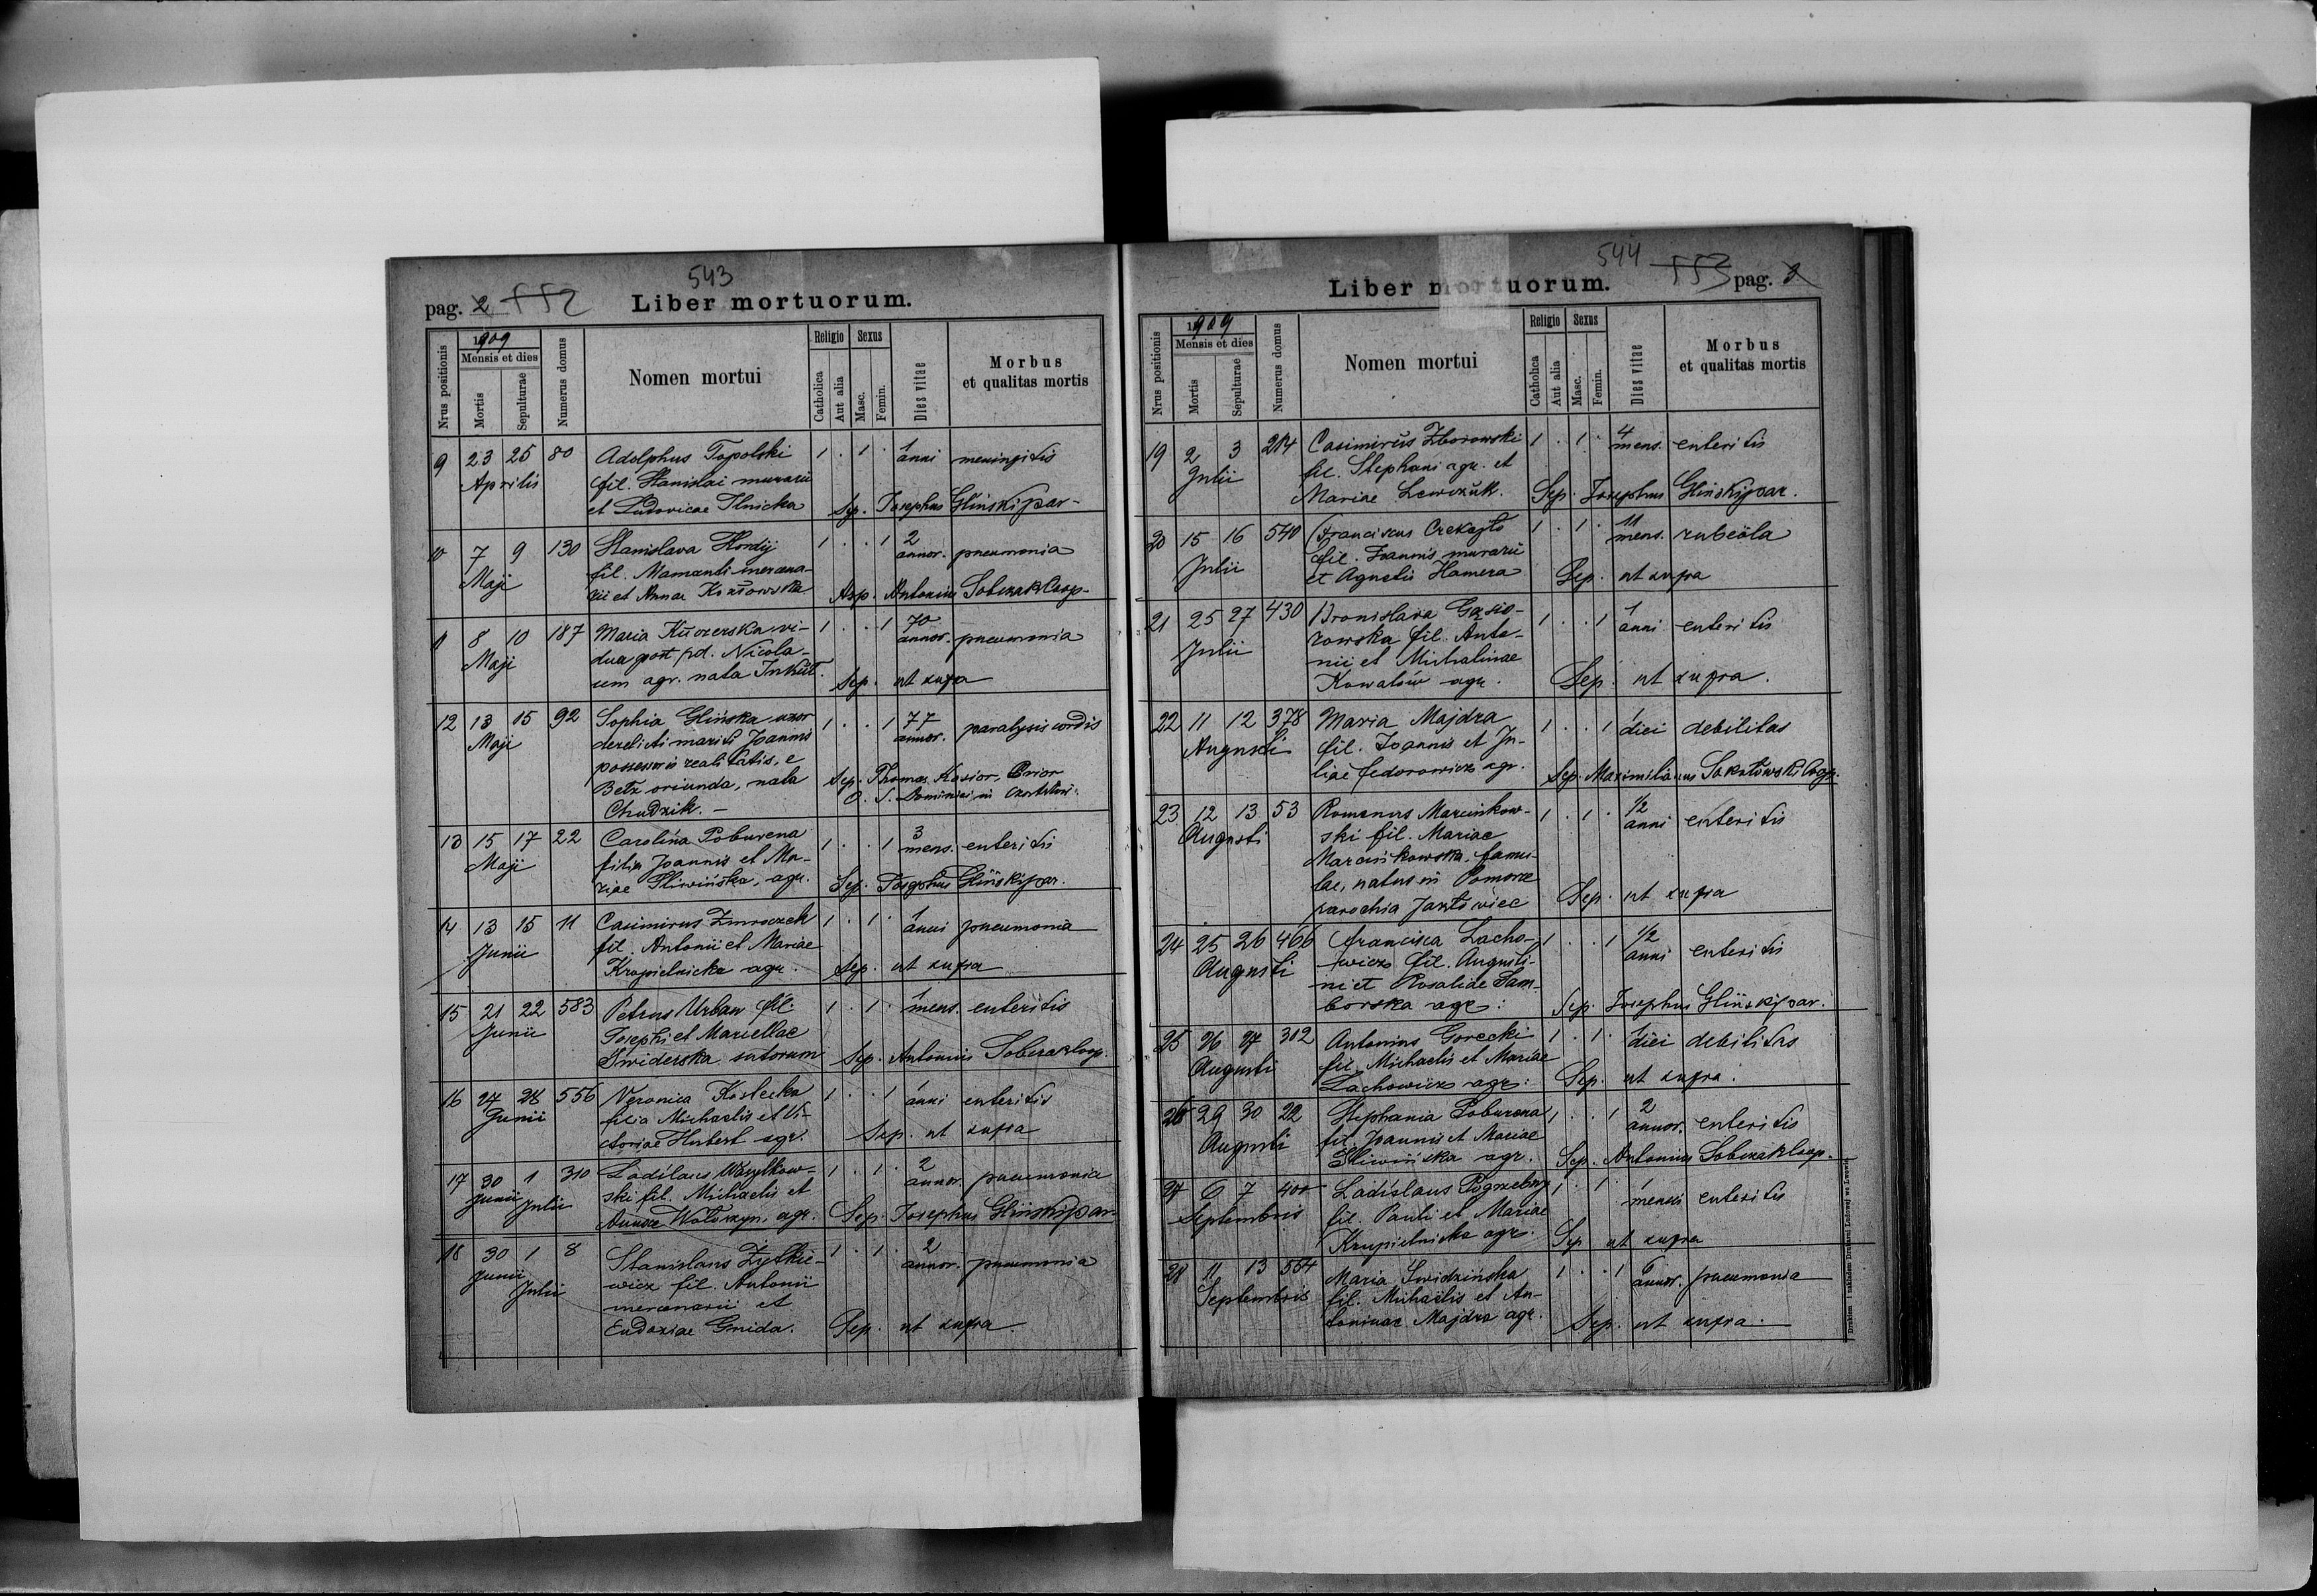 543
pag. 2 552 Liber mortuorum.
Nrus positionis
1909
Mensis et dies
Mortis
Sepulturae
Numerus domus
Nomen mortui
Religio
Catholica
Aut alia
Sexus
Masc.
Femin.
Dies vitae
Morbus
et qualitas mortis
9 23 25 80 Adolphus Topolski 1 . 1 . 1 anni meningitis
Aprilis fil. Stanislai murarii
et Ludovicae Ilnicka Sep. Josephus Gliński par.
10 7 9 130 Stanislava Hordij 1 . . 1 2 annor. pneumonia
Maji fil. Mamanti mercena-
rii et Annae Kozłowska Sep. Antonius Sobczak Coop.
11 8 10 187 Maria Kuczerska vi- 1 . . 1 70 annor. pneumonia
Maji dua post pd. Nicola-
um agr. nata Inkut. Sep. ut supra
12 13 15 92 Sophia Glińska uxor 1 . . 1 77 annor. paralysis cordis
Maji derelicti mariti Joannis
possessoris realitatis, e
Betz oriunda, nata Sep. Thomas Kasior, Prior
Chudzik. – O. S. Dominici in
13 15 17 22 Carolina Poburena 1 . . 1 3 mens. enteritis
Maji filia Joannis et Ma-
riae Śliwińska, agr. Sep. Josephus Gliński par.
14 13 15 11 Casimirus Zmroczek 1 . 1 . 1 anni pneumonia
Junii fil. Antonii et Mariae
Krupielnicka agr. Sep. ut supra
15 21 22 583 Petrus Urban fil. 1 . 1 . 1 mens. enteritis
Junii Josephi et Marcellae
Świderska sutorum Sep. Antonius Sobczak coop.
16 27 28 556 Veronica Kostecka 1 . . 1 1 anni enteritis
Junii filia Michaelis et Vi-
ctoriae Hubert agr. Sep. ut supra
17 30 1 310 Ladislaus Wasylkow- 1 . 1 . 2 annor. pneumonia
Junii Julii ski fil. Michaelis et
Annae Wołoszyn, agr. Sep. Josephus Gliński par.
18 30 1 8 Stanislaus Żytkie- 1 . 1 . 2 annor. pneumonia
Junii Julii wicz fil. Antonii
mercenarii et
Eudoxiae Gnida. Sep. ut supra
544
Liber mortuorum. 553 pag. 3
Nrus positionis
1909
Mensis et dies
Mortis
Sepulturae
Numerus domus
Nomen mortui
Religio
Catholica
Aut alia
Sexus
Masc.
Femin.
Dies vitae
Morbus
et qualitas mortis
19 2 3 214 Casimirus Zborowski 1 . 1 . 4 mens. enteritis
Julii fil. Stephani agr. et
Mariae Lewczuk. Sep. Josephus Gliński par.
20 15 16 540 Franciscus Czekajło 1 . 1 . 11 mens. rubeola
Julii fil. Joannis murarii
et Agnetis Hamera Sep. ut supra
21 25 27 430 Bronislava Gąsio- 1 . . 1 1 anni enteritis
Julii rowska fil. Anto-
nii et Michalinae
Kowalów agr. Sep. ut supra.
22 11 12 378 Maria Majdra 1 . . 1 1 diei debilitas
Augusti fil. Joannis et Ju-
liae Fedorowicz agr. Sep. Maximilianus Sokołowski Coop.
23 12 13 53 Romanus Marcinkow- 1 . 1 . 1/2 anni enteritis
Augusti ski fil. Mariae
Marcinkowska, famu-
lae, natus in Pomorze
parochia Jazłowiec Sep. ut supra
24 25 26 466 Francisca Lacho- 1 . . 1 1/2 anni enteritis
Augusti wicz fil. Augusti-
ni et Rosalide Sam-
borska agr: Sep. Josephus Gliński par.
25 26 27 302 Antonius Gorecki 1 . 1 . 1 diei debilitas
Augusti fil. Michaelis et Mariae
Lachowicz agr: Sep. ut supra.
26 29 30 22 Stephania Poburena 1 . . 1 2 annor. enteritis
Augusti fil. Joannis et Mariae
Śliwińska agr. Sep. Antonius Sobczak coop.
27 6 7 400 Ladislaus Pogrzebny 1 . 1 . 1 mensis enteritis
Septembris fil. Pauli et Mariae
Krupielnicka agr. Sep. ut supra
28 11 13 554 Maria Świdzińska 1 . . 1 6 annor. pneumonia
Septembris fil. Michaelis et An-
toninae Majdra agr. Sep. ut supra.
Drukiem i nakładem Drukarni Ludowej we Lwowie.